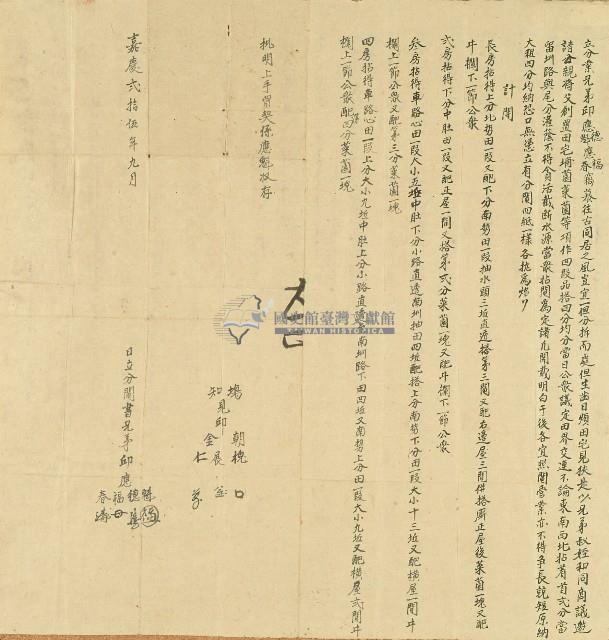 立分業兄弟邱應魁應春
德福
竊慕往古同居之風豈宜一担分拆而處但生齒日煩田宅見狹是以兄弟叔姪和同商議邀
請母親將父創置田宅埔菌菜菌等項作四段品搭四分均分當日公眾議定田界交連不論東南西北拈着首式分當
留圳路與尾分灌蔭不得貪活截断水源當眾拈鬮為定諸凡開載明白于後各宜照鬮營業亦不得爭長競短原納
大租四分均納恐口無憑立有分鬮四紙一樣各执為炤
計開
長房拈得上分北勢田一段又配下分南勢田一段抽水頭三坵直透搭第三鬮又配右邊屋三間併搭厨正屋後菜菌一塊又配
牛欄下一節公眾
式房拈得下分中肚田一段又配正屋一間又搭第式分菜菌一塊又陞牛欄下一節公眾
叁房拈得車路心田一段大小五坵中肚下分小路直透南圳抽田四坵配搭上分南勢下分田一段大小十三坵又配横屋一間牛
欄上一節公眾又配第三分菜菌一塊
四房拈得車路心田一段上分大小九坵中肚上分小路直透南圳路下田四坵又南勢上分田一段大小九坵又配横屋式間牛
欄上一節公眾配四分菜菌一塊
批明上手曾契係應魁收存
國史館臺灣文獻館
TAIWAN HISTORICA
場 朝桄
知見邱 展
金 仁
嘉慶式拾伍年九月
日立分鬮書兄弟邱應
魁
德
福
春